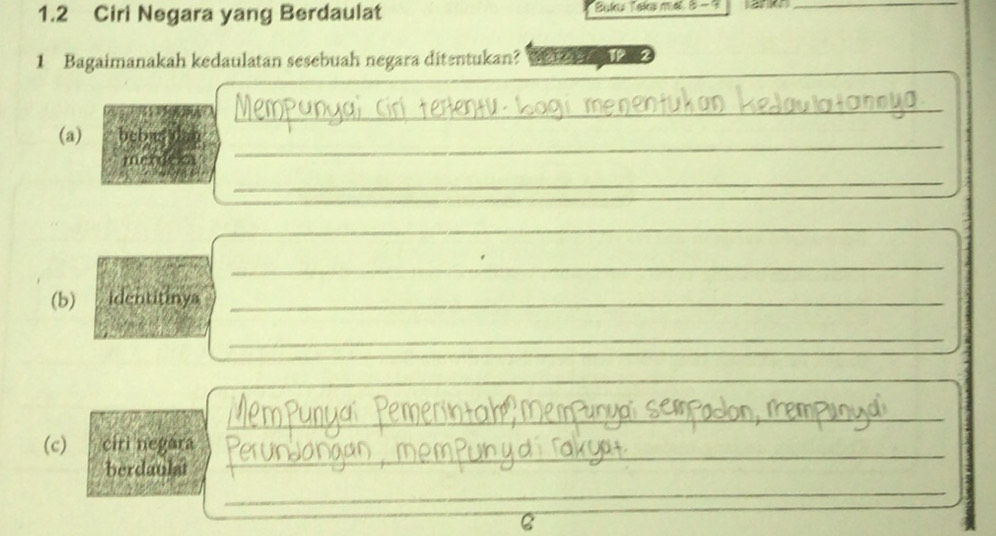 1.2 Ciri Negara yang Berdaulat
Buku Teks m.s. 8 – 9
1 Bagaimanakah kedaulatan sesebuah negara ditentukan? TP 2
Mempunyai ciri tertentu. bagi menentukan kedaulatannya
(a) bebas dan
merdeka
(b) identitinya
Mempunyai Pemerintah, mempunyai sempadan, mempunyai
(c) ciri negara
Perundangan, mempunyai rakyat.
berdaulat